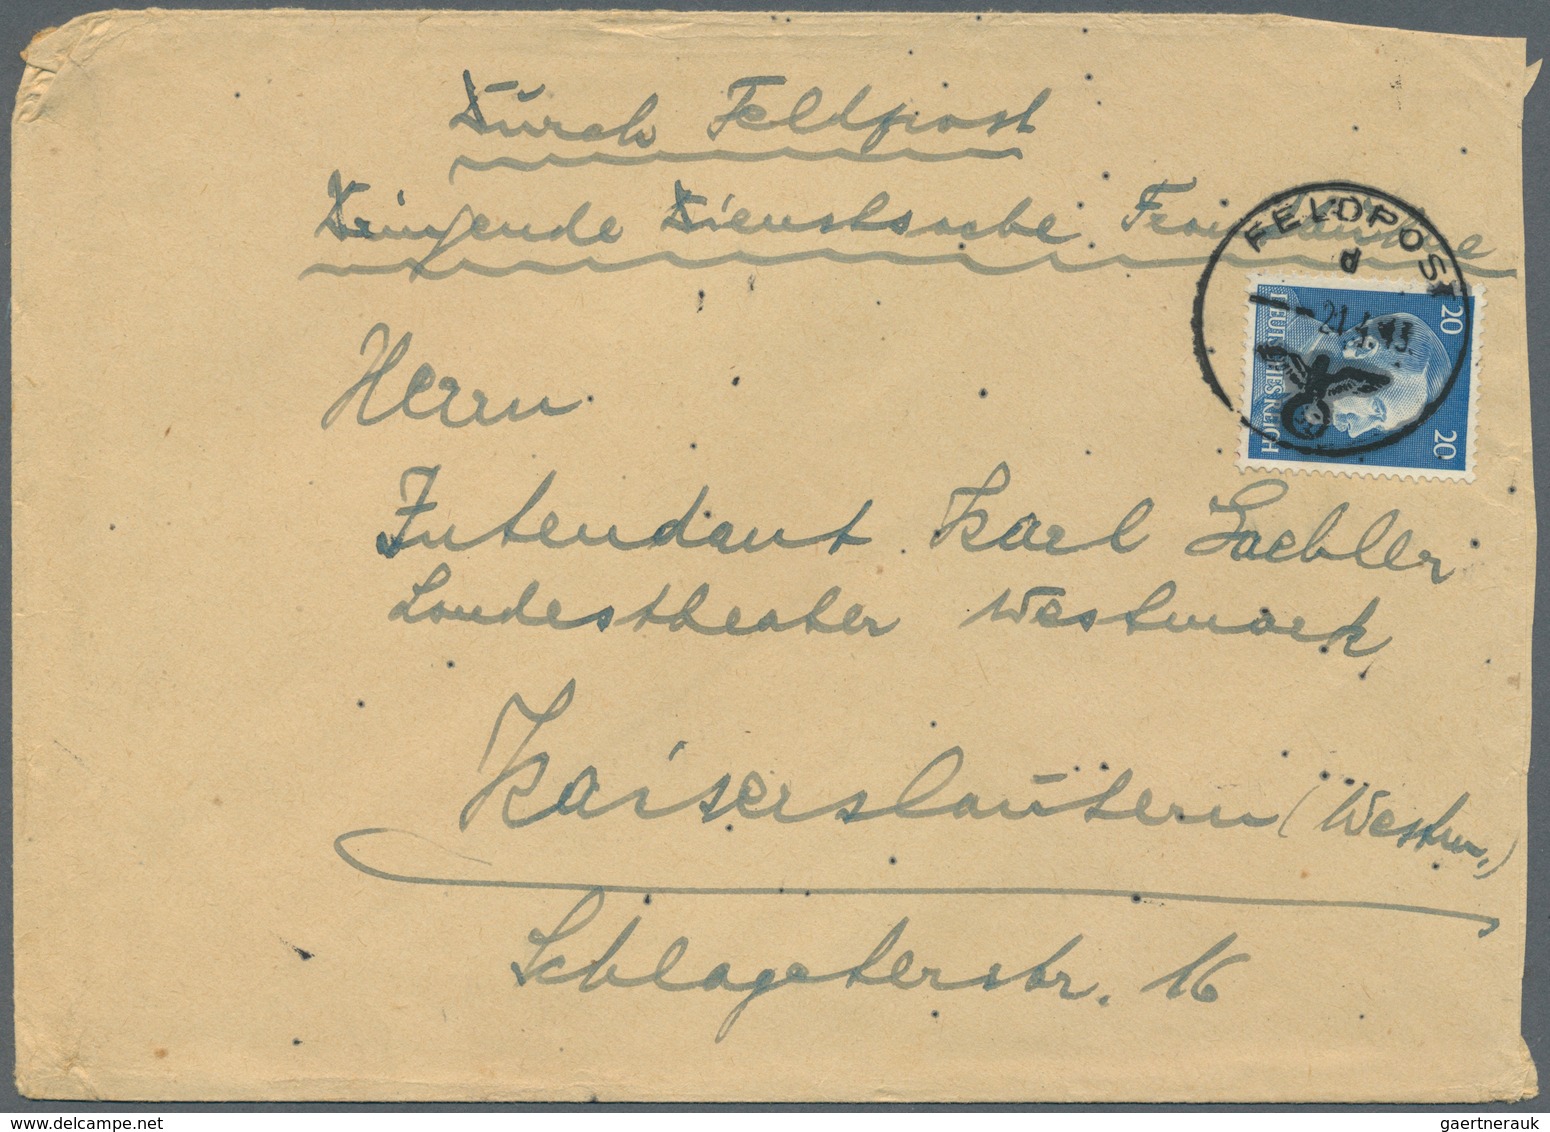 Durch Feldpost
Dringende Dienstsache
FELDPOST
d
-21.4.43.
20 20
DEUTSCHES REICH
Herrn
Intendant Karl Gaebler
Landestheater Westmark
Kaiserslautern (Westm.)
Schlageterstr. 16
gaertnerauk@delcampe.net